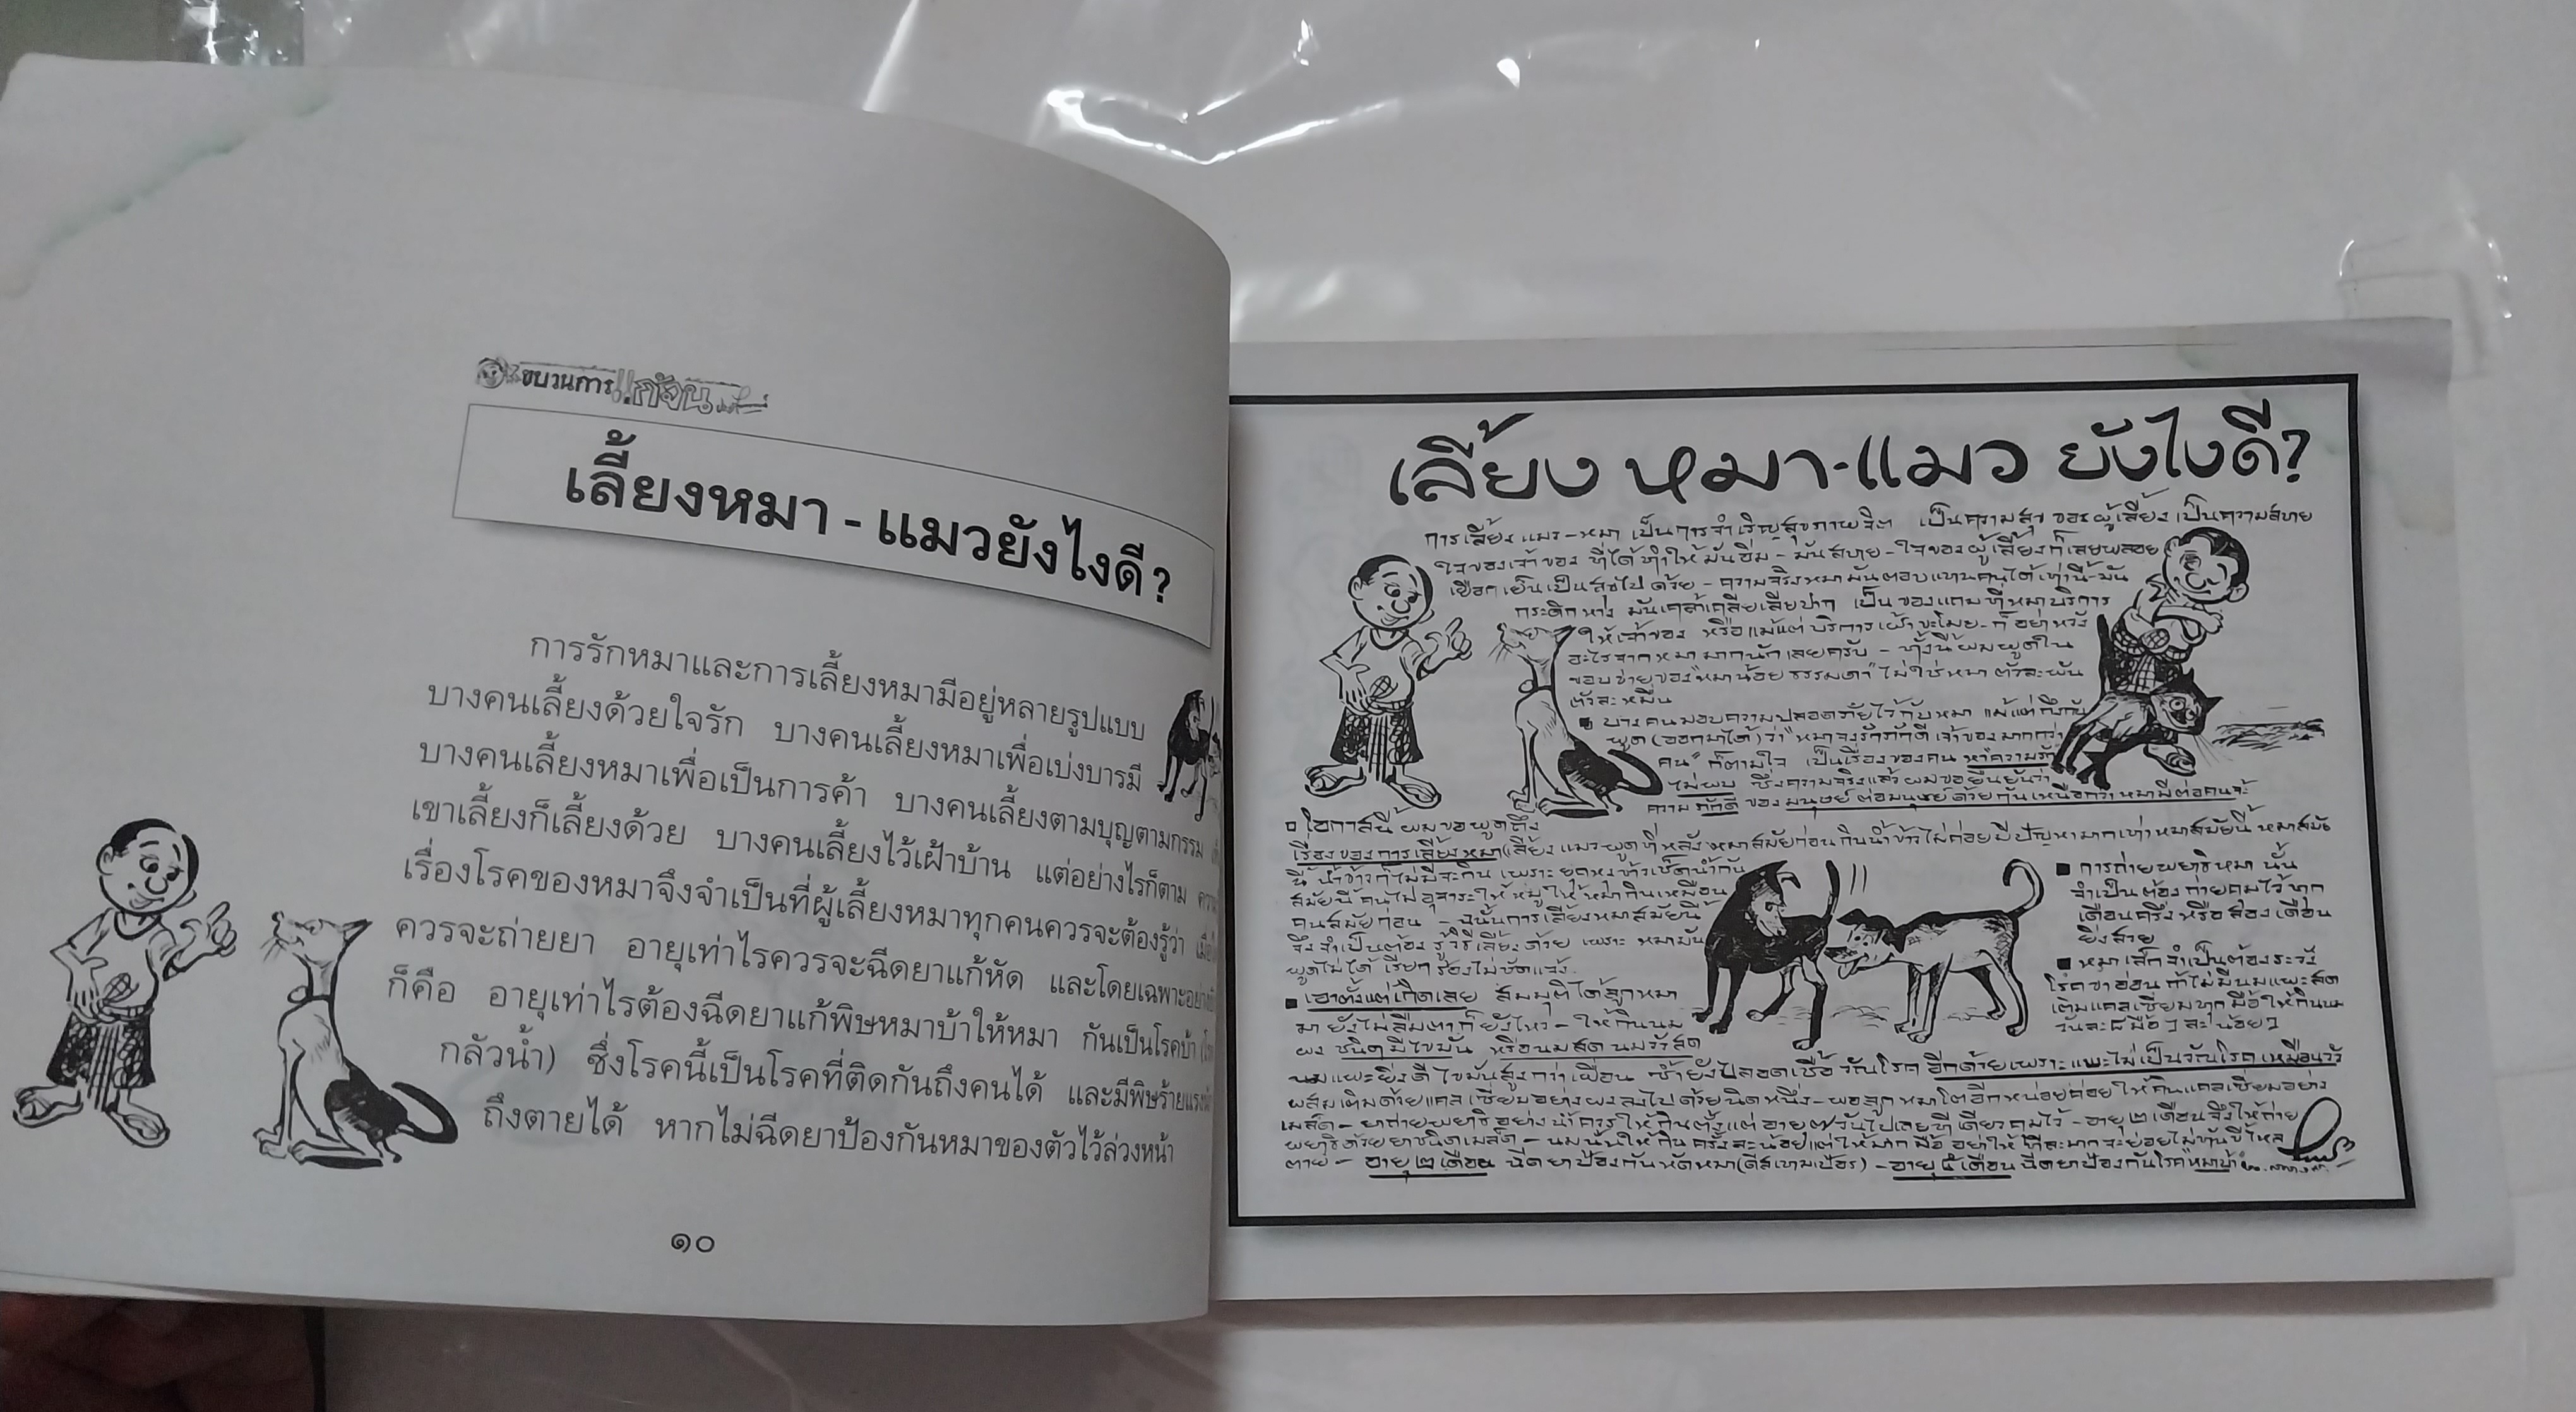 ขบวนการ!!ก้จน
เลี้ยงหมา - แมวยังไงดี?
การรักหมาและการเลี้ยงหมามีอยู่หลายรูปแบบ
บางคนเลี้ยงด้วยใจรัก บางคนเลี้ยงหมาเพื่อเบ่งบารมี
บางคนเลี้ยงหมาเพื่อเป็นการค้า บางคนเลี้ยงตามบุญตามกรรม
เขาเลี้ยงก็เลี้ยงด้วย บางคนเลี้ยงไว้เฝ้าบ้าน แต่อย่างไรก็ตาม
เรื่องโรคของหมาจึงจำเป็นที่ผู้เลี้ยงหมาทุกคนควรจะต้องรู้ว่า
ควรจะถ่ายยา อายุเท่าไรควรจะฉีดยาแก้หัด และโดยเฉพาะ
ก็คือ อายุเท่าไรต้องฉีดยาแก้พิษหมาบ้าให้หมา กันเป็นโรคบ้า
กลัวน้ำ) ซึ่งโรคนี้เป็นโรคที่ติดกันถึงคนได้ และมีพิษร้ายแรง
ถึงตายได้ หากไม่ฉีดยาป้องกันหมาของตัวไว้ล่วงหน้า
๑๐
เลี้ยง หมา-แมว ยังไงดี?
การเลี้ยง แมว-หมา เป็นการจำเริญสุขภาพจิต เป็นความสุข ของผู้เลี้ยง เป็นความสบาย
ใจของเจ้าของ ที่ได้ทำให้มันอิ่ม-มันสบาย-ใจของผู้เลี้ยงก็เลยพลอย
เยือกเย็นเป็นสุขไปด้วย - ความจริงหมามันตอบแทนคุณได้เท่านี้-มัน
กระดิกหาง มันเคล้าเคลียเลียปาก เป็นของแถมที่หมาบริการ
ให้เจ้าของ หรือแม้แต่บริการเฝ้าขะโมย-ก็อย่าหวัง
อะไรจากหมามากนักเลยครับ - ทั้งนี้ผมพูดใน
ขอบข่ายของ"หมาน้อยธรรมดา"ไม่ใช่หมาตัวละพัน
ตัวละหมื่น
■ บางคนมอบความปลอดภัยไว้กับหมา แม้แต่ถึงกับ
พูด(ออกมาได้)ว่า"หมาจงรักภักดีเจ้าของมากกว่า
คน" ก็ตามใจ เป็นเรื่องของคน หา"ความรัก"
ไม่พบ ซึ่งความจริงแล้วผมขอยืนยันว่า
ความภักดีของมนุษย์ต่อมนุษย์ด้วยกันเหนือกว่าหมามีต่อคนจ้ะ
□ โอกาสนี้ ผมขอพูดถึง
เรื่องของการเลี้ยงหมา(เลี้ยงแมว-พูดทีหลัง หมาสมัยก่อนกินน้ำข้าวไม่ค่อยมีปัญหามากเท่าหมาสมัยนี้ หมาสมัย
นี้ น้ำข้าวก็ไม่มีจะกิน เพราะยุคหุงข้าวเช็ดน้ำกัน
สมัยนี้คนไม่อุจาระให้หมูให้หมากินเหมือน
คนสมัยก่อน - ฉนั้นการเลี้ยงหมาสมัยนี้
จึงจำเป็นต้องรู้วิธีเลี้ยงด้วย เพราะ หมามัน
พูดไม่ได้ เรียกร้องไม่ชัดแจ้ง
■ เอาตั้งแต่เกิดเลย สมมุติได้ลูกหมา
มา ยังไม่ลืมตาก็ยังไหว - ให้กินนม
ผง ชนิดมีไขมัน หรือนมสด นมวัวสด
■ การถ่ายพยาธิหมา นั้น
จำเป็นต้องถ่ายคุมไว้ทุก
เดือนครึ่งหรือสองเดือน
ยิ่งสวย
■ หมาเล็กจำเป็นต้องระวัง
โรคขาอ่อน ถ้าไม่มีนมแพะสด
เติมแคลเซี่ยมทุกมื้อให้กินนม
วันละ ๘ มื้อ ๆ ละน้อย ๆ
นมแพะยิ่งดี ไขมันสูงกว่าเผื่อน ซ้ำยังปลอดเชื้อวัณโรคอีกด้วยเพราะแพะไม่เป็นวัณโรคเหมือนวัว
ผสมเติมด้วยแคลเซี่ยมอย่างผงลงไปด้วยนิดหนึ่ง-พอลูกหมาโตอีกหน่อยค่อยให้กินแคลเซี่ยมอย่าง
เม็ด-ยาถ่ายพยาธิอย่างน้ำควรให้กินตั้งแต่อายุ๗วันไปเลยทีเดียวคุมไว้-อายุ๒เดือนจึงให้ถ่าย
พยาธิด้วยยาชนิดเม็ด- นมนั้นให้กินครั้งละน้อยแต่ให้มากมื้อ อย่าให้ทีละมากจะย่อยไม่ทันขี้ไหล
ตาย- อายุ๒เดือน ฉีดยาป้องกันหัดหมา(ดีสเทมเป้อร) -อายุ๕เดือน ฉีดยาป้องกันโรคหมาบ้า